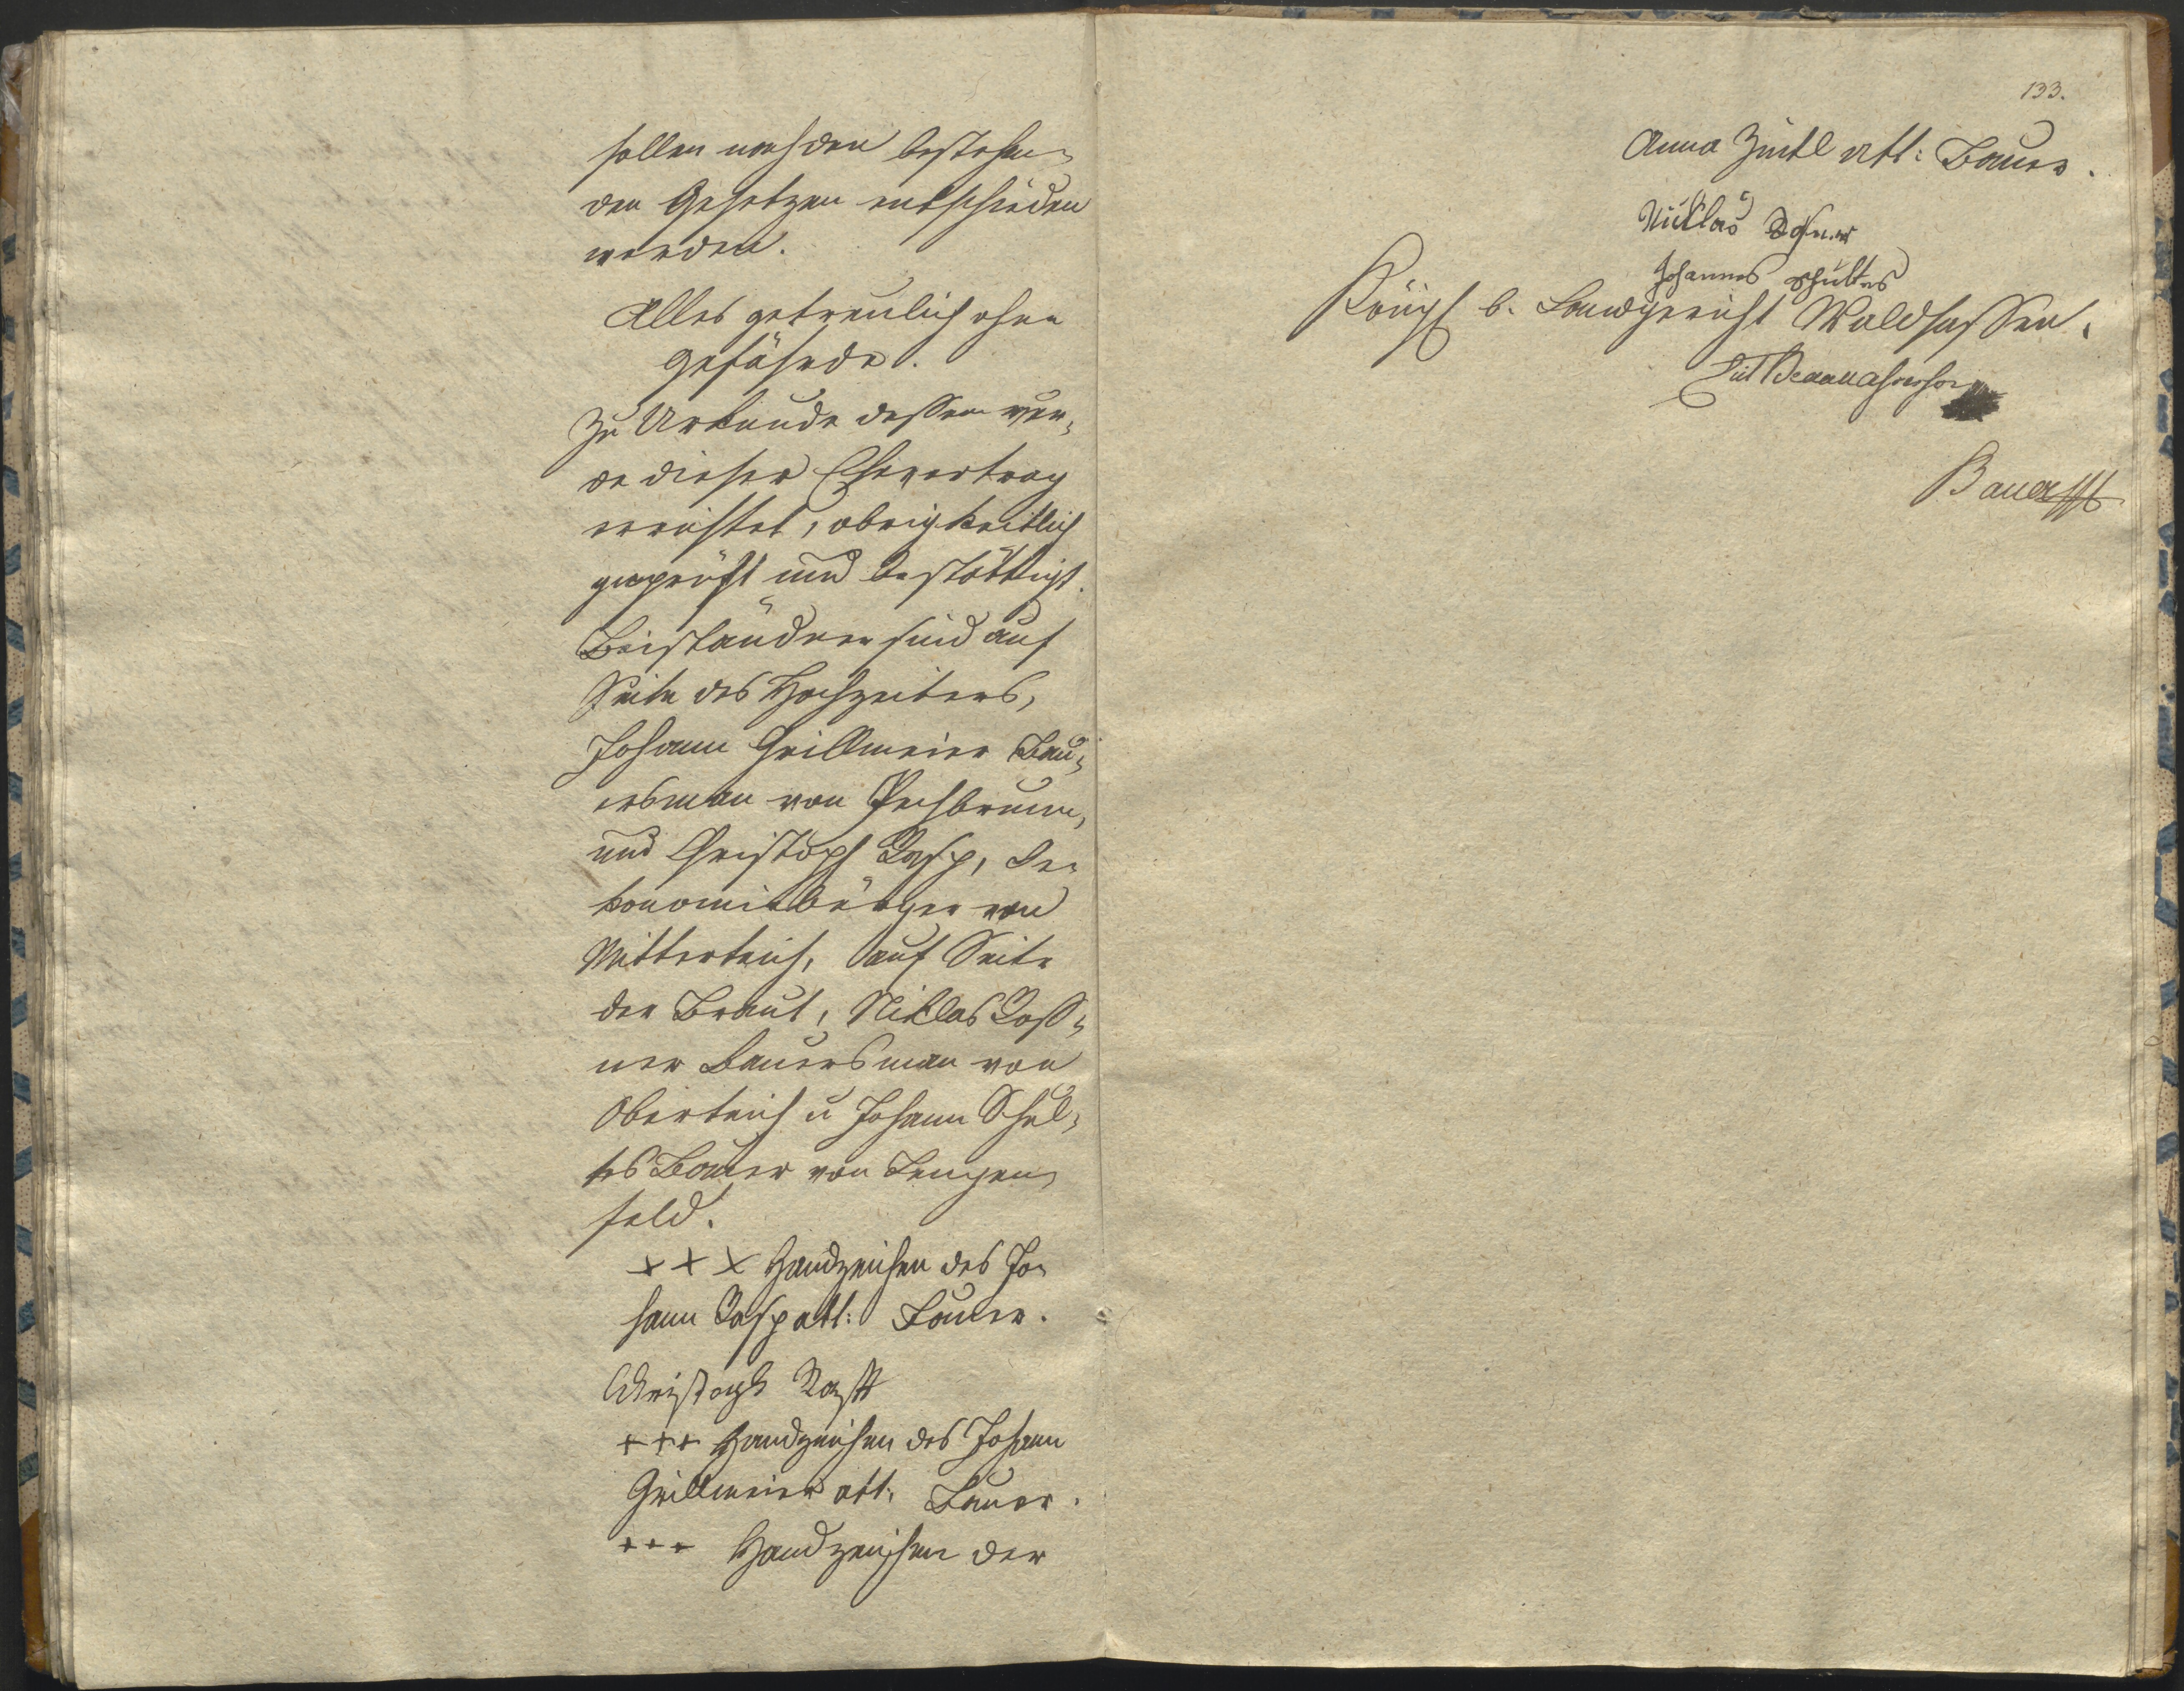 sollen nach den bestehen-
den Gesetzen entschieden
werden.
Alles getreulich ohne
Gefährde.
Zu Urkunde dessen wur-
de dieser Ehevertrag
errichtet, obrigkeitlich
geprüft und bestättigt.
Beiständner sind auf
Seite des Hochzeiters,
Johann Grillmeier Bau-
ersman von Pechbrunn,
und Christoph Rasp, Oe-
konomiebürger von
Mitterteich, auf Seite
der Braut, Niklas
ner Bauersman von
Oberteich u Johann Schul-
tes Bauer von Lengen-
feld.
+ + + Handzeichen des Jo-
hann Rasp att: Bauer.
Christoph
+++ Handzeichen des Johann
Grillmeier att: Bauer.
+++ Handzeichen der
133.
Anna Zintl att: Bauer.
Nicklas
Johannes Schultes
Königl b. Landgericht Waldsassen.
Bauer